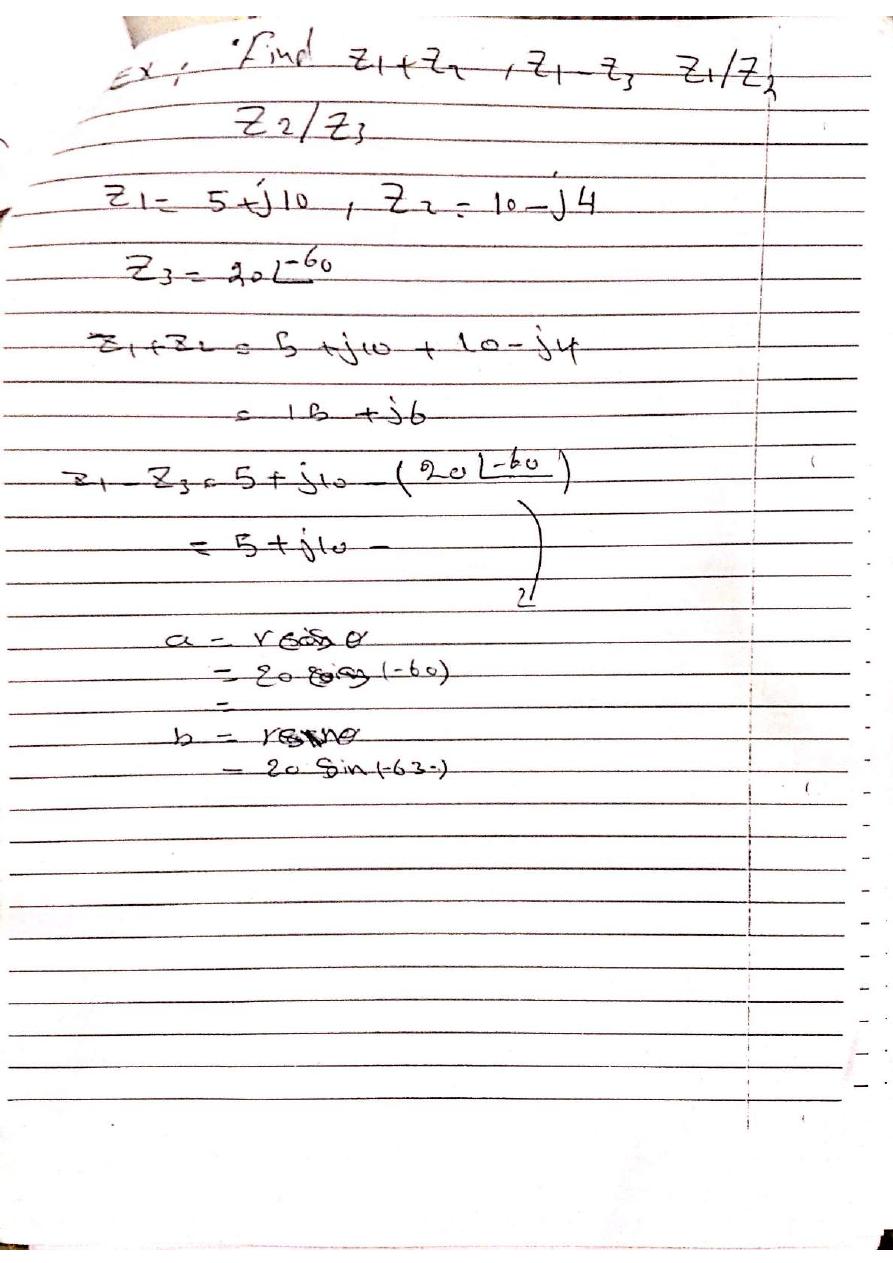 Ex: Find Z1+Z2 , Z1-Z3 Z1/Z2
Z2/Z3
Z1= 5+j10 , Z2 = 10-j4
Z3 = 20∠-60
Z1+Z2 = 5 +j10 + 10-j4
= 15 +j6
Z1-Z3 = 5+j10 -(20∠-60)
= 5+j10 -
a = r cos θ
= 20 cos (-60)
=
b = r sin θ
= 20 Sin